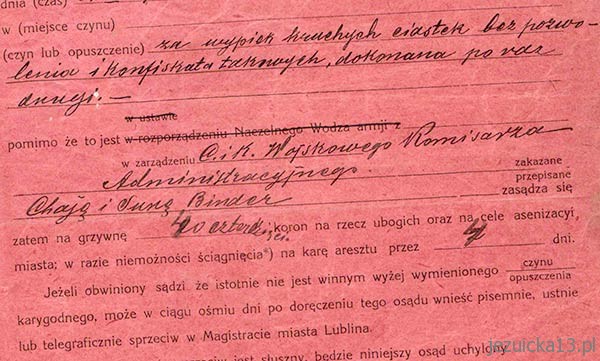 dnia (czas)
w (miejsce czynu)
(czyn lub opuszczenie) za wypiek kruchych ciastek bez pozwo-
lenia i konfiskata takowych, dokonana po raz
drugi. —
w ustawie
pomimo że to jest w rozporządzeniu Naczelnego Wodza armji z
w zarządzeniu C. i K. Wojskowego Komisarza
Administracyjnego. zakazane
przepisane
Chają i Surę Binder zasądza się
zatem na grzywnę 40 czterdzieści koron na rzecz ubogich oraz na cele asenizacyi
miasta; w razie niemożności ściągnięcia*) na karę aresztu przez 4 dni.
Jeżeli obwiniony sądzi że istotnie nie jest winnym wyżej wymienionego czynu
opuszczenia
karygodnego, może w ciągu ośmiu dni po doręczeniu tego osądu wnieść pisemnie, ustnie
lub telegraficznie sprzeciw w Magistracie miasta Lublina.
jest słuszny, będzie niniejszy osąd uchylony
jezuicka13.pl